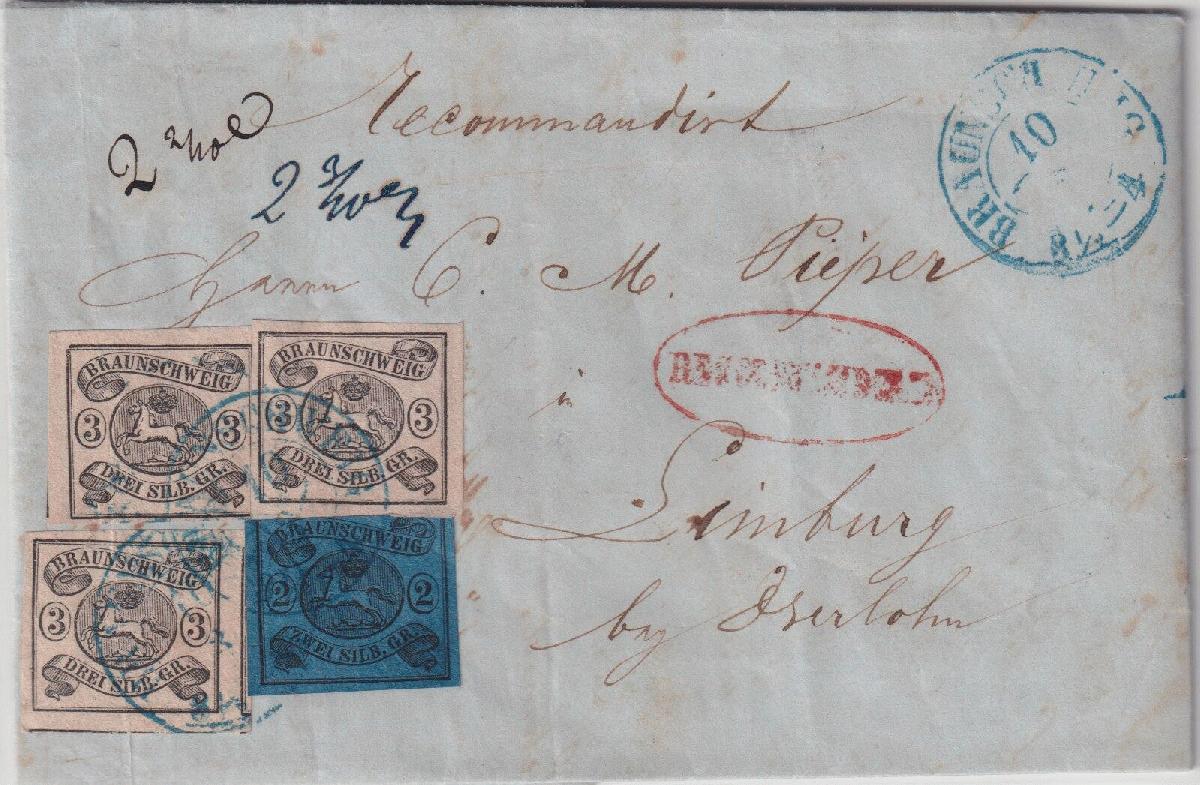 Recommandirt
2
2
Herrn C. M. Pieper
in
Limburg
bey Iserlohn
BRAUNSCHWEIG
10
8½-4
RECOMMANDIRT
BRAUNSCHWEIG
3 3
DREI SILB. GR.
BRAUNSCHWEIG
3 3
DREI SILB. GR.
BRAUNSCHWEIG
3 3
DREI SILB. GR.
BRAUNSCHWEIG
2 2
ZWEI SILB. GR.